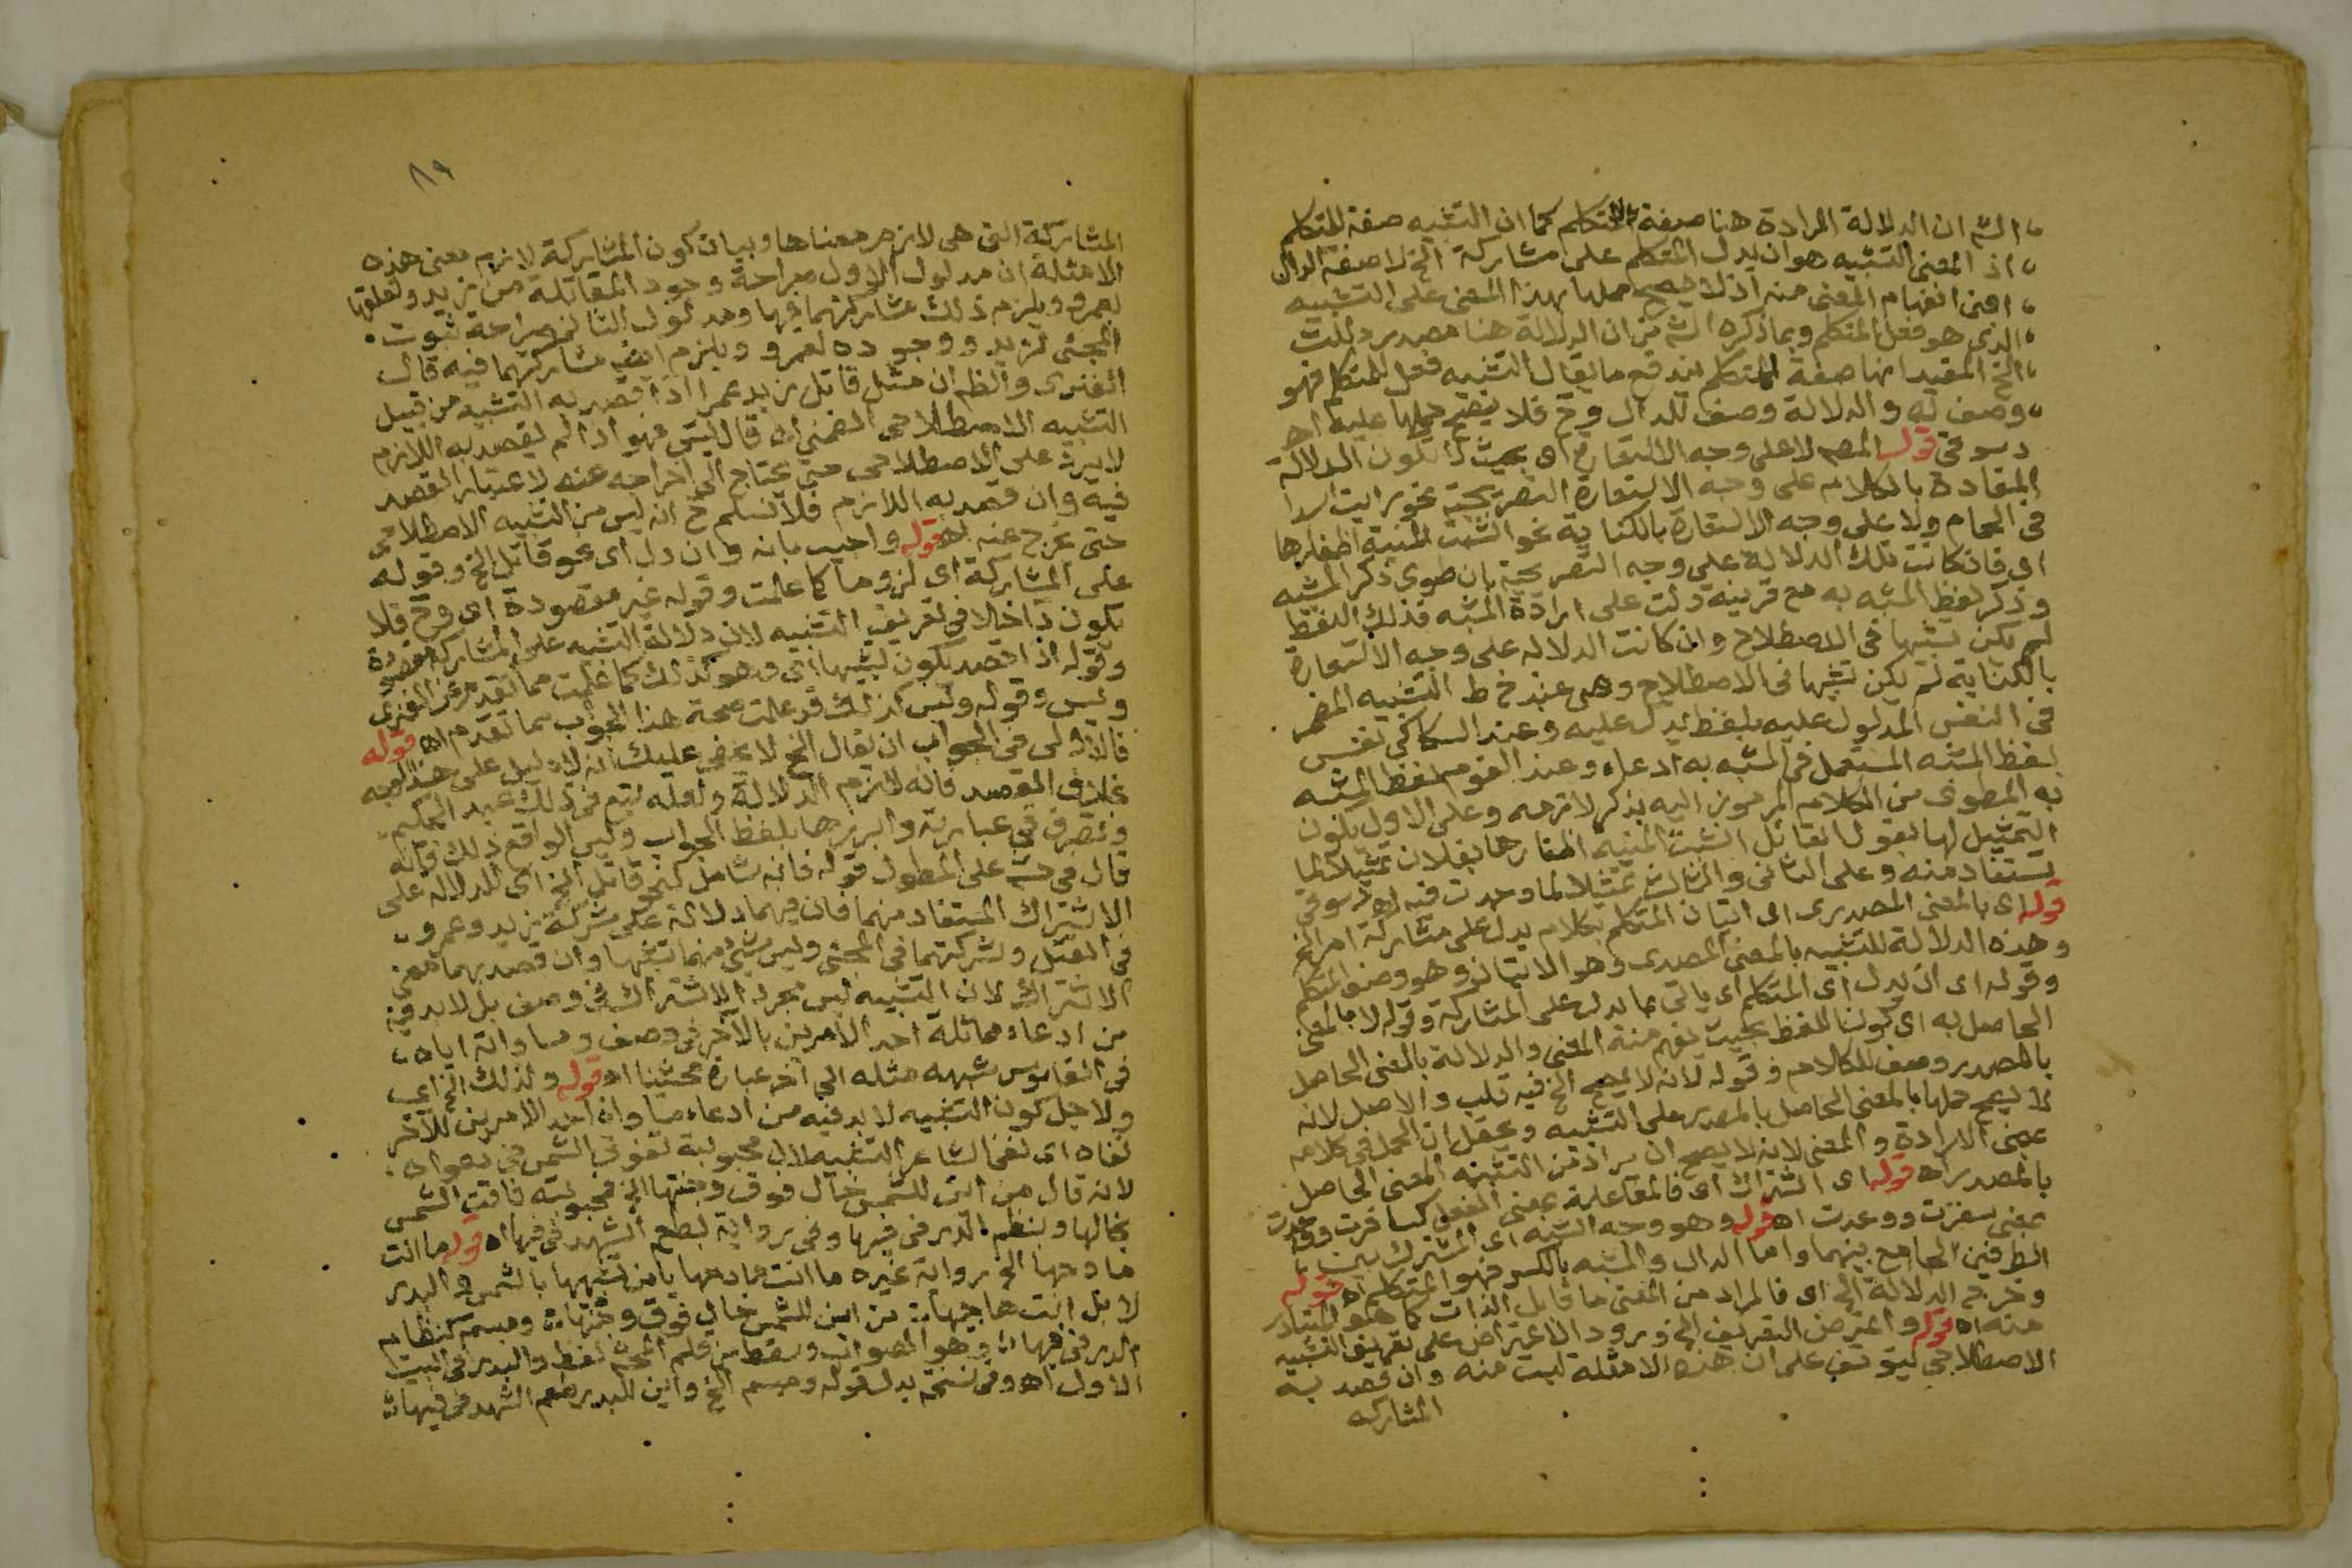 الشم ان الدلالة المرادة هنا صفة للمتكلم كما ان التشبيه صفة للمتكلم
اذ المعنى التشبيه هو ان يدل المتكلم على مشاركة الخ لا صفة الدال
اعنى انفهام المعنى منه اذ لا يصح حملها بهذا المعنى على التشبيه
الذى هو فعل المتكلم وبما ذكره الشم من ان الدلالة هنا مصدر دللت
الخ المفيد انها صفة المتكلم يندفع ما يقال التشبيه فعل المتكلم فهو
وصف له والدلالة وصف للدال وح فلا يصح حملها عليه اهـ
دسوقى قوله المصم لا على وجه الاستعارة اى بحيث لا تكون الدلالة
المفادة بالكلام على وجه الاستعارة التصريحية نحو رايت اسدا
فى الحمام ولا على وجه الاستعارة بالكناية نحو انشبت المنية اظفارها
اى فان كانت تلك الدلالة على وجه التصريحية بان طوى ذكر المشبه
وذكر لفظ المشبه به مع قرينة دلت على ارادة المشبه فذلك اللفظ
لم يكن تشبيها فى الاصطلاح وان كانت الدلاله على وجه الاستعارة
بالكناية لم يكن تشبيها فى الاصطلاح وهى عند خ ط التشبيه المضمر
فى النفس المدلول عليه بلفظ يدل عليه وعند السكاكى نفس
لفظ المشبه المستعمل فى المشبه به ادعاء وعند القوم لفظ المشبه
به المطوى من الكلام المرموز اليه بذكر لازمه وعلى الاول يكون
التمثيل لها بقول القائل انشبت المنية اظفارها بفلان تمثيلا لما
يستفاد منه وعلى الثانى والثالث تمثيلا لما وجدت فيه اهـ دسوقى
قوله اى بالمعنى المصدرى اى اتيان المتكلم بكلام يدل على مشاركة امر الخ
وهذه الدلالة للتشبيه بالمعنى المصدرى وهو الاتيان وهو وصف المتكلم
وقوله اى ان يدل اى المتكلم اى ياتى بما يدل على المشاركة وقوله لا بالمعنى
الحاصل به اى كون اللفظ بحيث يفهم منه المعنى والدلالة بالمعنى الحاصل
بالمصدر وصف للكلام وقوله لانه لا يصح الخ فيه قلب والاصل لانه
لا يصح حملها بالمعنى الحاصل بالمصدر على التشبيه ويحتمل ان الحمل فى كلامه
بمعنى الارادة والمعنى لانه لا يصح ان يراد من التشبيه المعنى الحاصل
بالمصدر اهـ قوله اى اشتراك اى فالمفاعلة بمعنى الفعل كسافرت وواعدت
بمعنى سفرت ووعدت اهـ قوله وهو وجه الشبه اى المشترك بين
الطرفين الجامع بينهما واما الدال والمشبه بالكسر فهو المتكلم اهـ قوله
وخرج الدلالة الخ اى فالمراد من المعنى ما قابل الذات كما هو المتبادر
منه اهـ قوله واعترض التعريف الخ ورود الاعتراض على تعريف التشبيه
الاصطلاحى يتوقف على ان هذه الامثلة ليست منه وان قصد به
المشاركه
٨٩
المشاركة التى هى لازم معناها وبيان كون المشاركة لازم معنى هذه
الامثلة ان مدلول الاول صراحة وجود المقاتلة من زيد وتعلقها
بعمرو ويلزم ذلك مشاركتهما فيها ومدلول الثانى صراحة ثبوت
المجئى لزيد ووجوده لعمرو ويلزم ايضا مشاركتهما فيه قال
الفنرى والظ ان مثل قاتل زيد عمرا اذا قصد به التشبيه من قبيل
التشبيه الاصطلاحى الضمنى اهـ قال يس فهو اذا لم يقصد به اللازم
لا يرد على الاصطلاحى حتى يحتاج الى اخراجه عنه لاعتبار القصد
فيه وان قصد به اللازم فلا نسلم ح انه ليس من التشبيه الاصطلاحى
حتى يخرج عنه اهـ قوله واجيب بانه وان دل اى نحو قاتل الخ وقوله
على المشاركة اى لزوما كما علمت وقوله غير مقصودة اى وح فلا
يكون داخلا فى تعريف التشبيه لان دلالة التشبيه على المشاركة مقصودة
وقوله اذا قصد يكون تشبيها اى وهو كذلك كما علمت مما تقدم عن الفنرى
ويس وقوله وليس كذلك قد علمت صحة هذا الجواب مما تقدم اهـ قوله
فالاولى فى الجواب ان يقال الخ لا يخفى عليك انه لا دليل على هذا
بخلاف القصد فانه لازم الدلالة ولعله تبع فى ذلك عبد الحكيم
وتصرف فى عبارته وابرزها بلفظ الجواب وليس الواقع ذلك فانه
قال فى حش على المطول قوله فانه شامل لنحو قاتل الخ اى للدلاله على
الاشتراك المستفاد منهما فان فيهما دلالة على شركة زيد وعمرو
فى القتل وشركتهما فى المجئى وليس شئ منهما تشبيها وان قصد بهما معنى
الاشتراك لان التشبيه ليس مجرد الاشتراك فى وصف بل لا بد فيه
من ادعاء مماثلة احد الامرين بالآخر فى وصف ومساواته اياه
فى القاموس شبهه مثله الى آخر عبارة محشينا اهـ قوله ولذلك الخ اى
ولاجل كون التشبيه لا بد فيه من ادعاء مساواة احد الامرين للآخر
نفاه اى نفى الشاعر التشبيه لان محبوبته تفوق الشمس فى دعواه
لانه قال من اين للشمس خال فوق وجنتها الخ فمحبوبته فاقت الشمس
بخالها وبنظم الدر فى فيها وفى رواية بطعم الشهد فى فيها اهـ قوله ما انت
مادحها الخ رواية غيره ما انت مادحها يا من يشبهها بالشمس والبدر
لا بل انت هاجيها من اين للشمس خال فوق وجنتها ومبسم كنظام
الدر فى فيها وهو الصواب وسقط من قلم المحشى لفظ والبدر فى البيت
الاول اهـ وفى نسخة بدل قوله ومبسم الخ واين للبدر طعم الشهد فى فيها